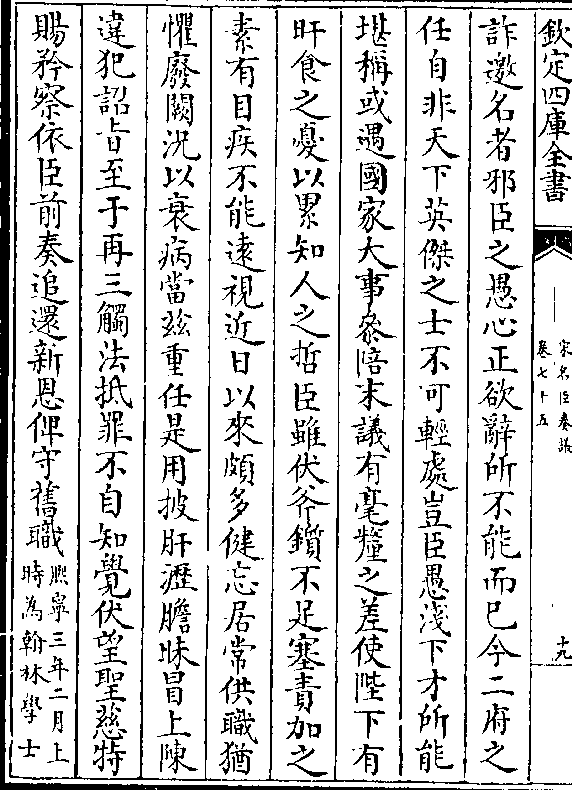 欽定四庫全書
宋名臣奏議
卷七十五
十九
詐邀名者邪臣之愚心正欲辭所不能而已今二府之
任自非天下英傑之士不可輕處豈臣愚淺下才所能
堪稱或遇國家大事叅陪末議有毫釐之差使陛下有
旰食之憂以累知人之哲臣雖伏斧鑕不足塞責加之
素有目疾不能遠視近日以來頗多健忘居常供職猶
懼廢闕況以衰病當兹重任是用披肝瀝膽昧冒上陳
違犯詔旨至于再三觸法抵罪不自知覺伏望聖慈特
賜矜察依臣前奏追還新恩俾守舊職熙寧三年二月上
時為翰林學士